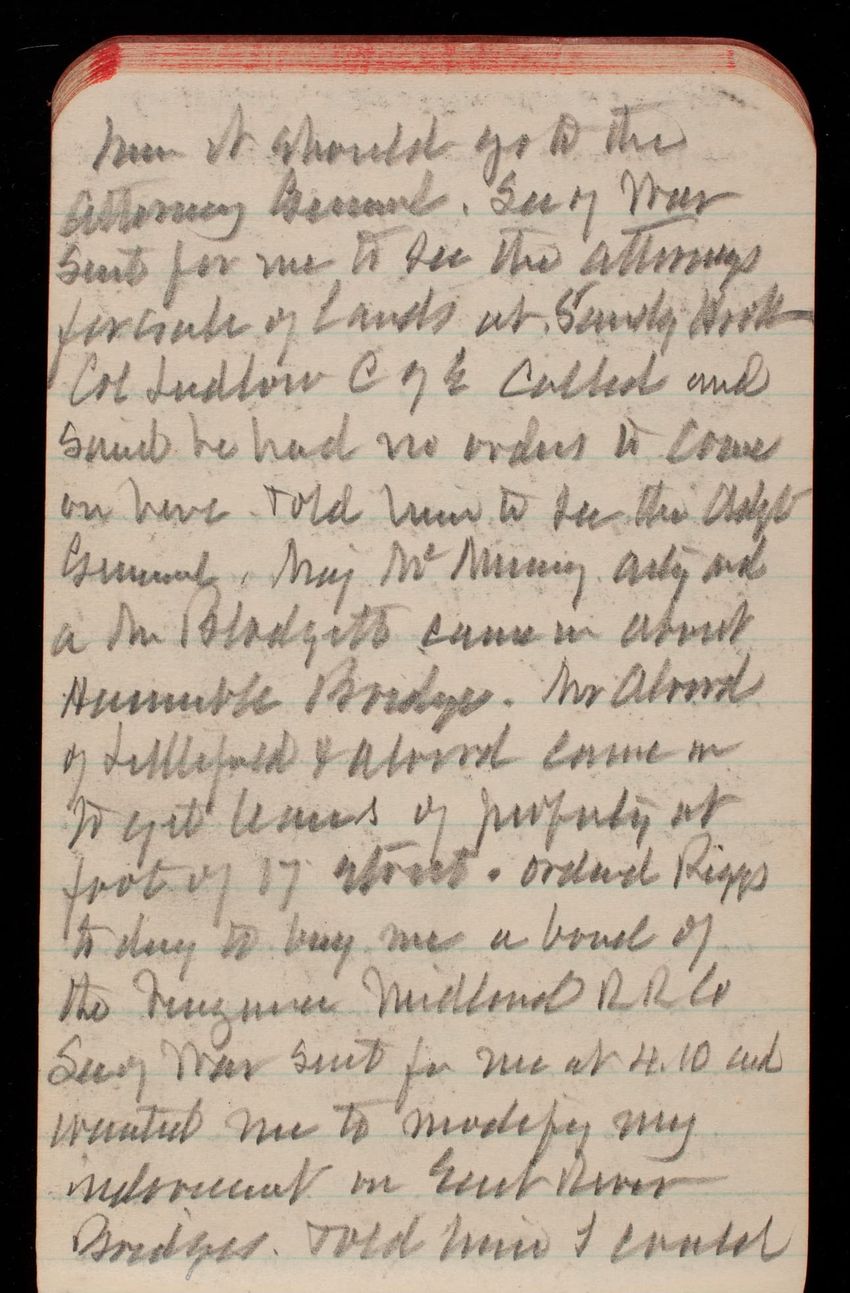 him it should go to the
Attorney General. Secy War
Sent for me to see the attorneys
for sale of Lands at Sandy Hook
Col Ludlow C of E called and
Said he had no orders to come
on here. Told him to see the Adgt
General. Maj McKinney actg and
a Mr Blodgett came in about
Bridge. Mr Alvord
of Littlefield & Alvord came in
to get leases of property at
foot of 17 street. ordered Riggs
to day to buy me a bond of
the Midland R R Co
Secy War sent for me at 4.10 and
wanted me to modify my
indorsement on East River
Bridges. Told him I could